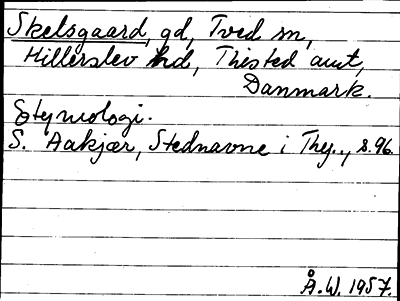 Skelsgaard, gd, Tved sn,
Hillerslev hd, Thisted amt,
Danmark.
Etymologi.
S. Aakjær, Stednavne i Thy.., s. 96.
Å.W. 1957.